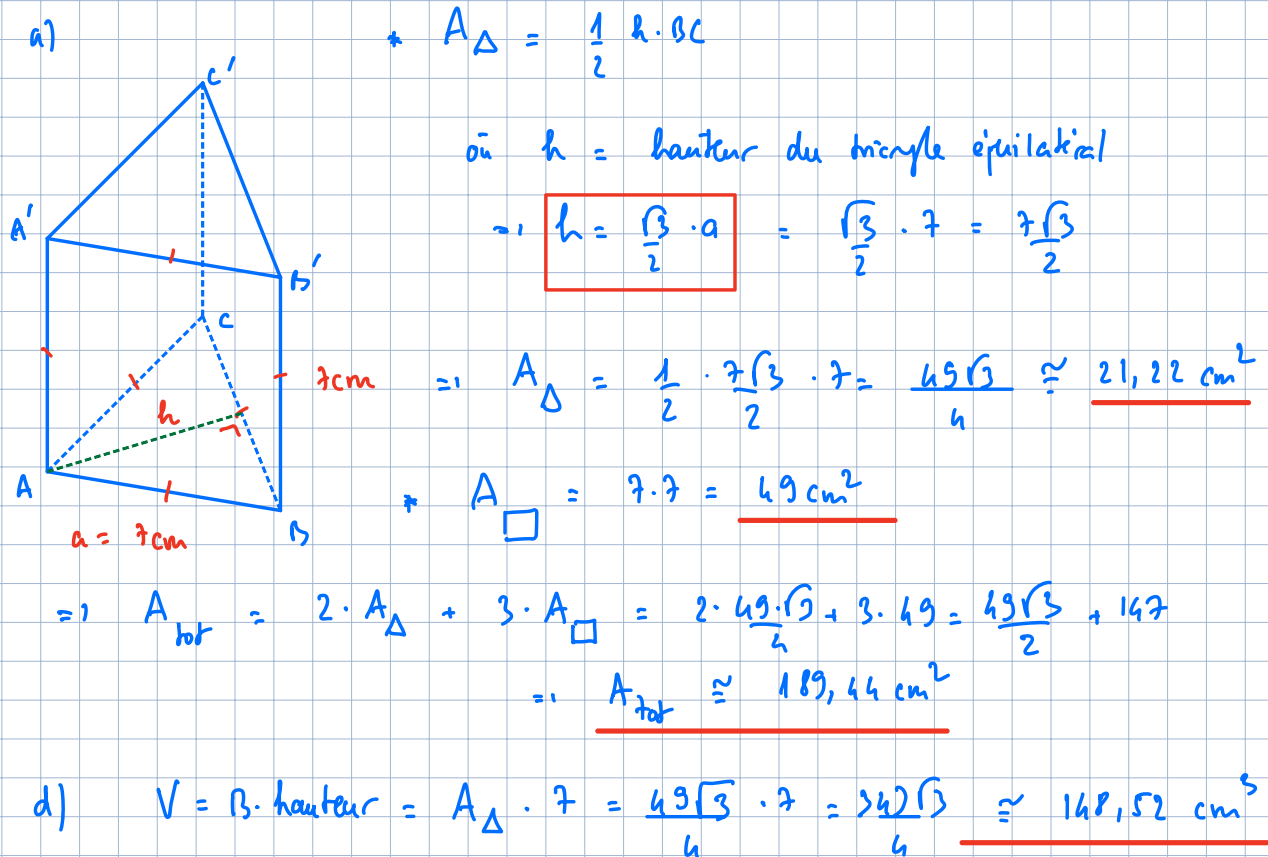 a)
* A△ = 1/2 h · BC
C'
où h = hauteur du triangle équilatéral
A'
=> h = √3/2 · a = √3/2 · 7 = 7√3/2
B'
C
7cm
=> A△ = 1/2 · 7√3/2 · 7 = 49√3/4 ≅ 21,22 cm²
h
A
* A□ = 7·7 = 49 cm²
B
a = 7cm
=> A tot = 2· A△ + 3· A□ = 2· 49·√3/4 + 3·49 = 49√3/2 + 147
=> A tot ≅ 189,44 cm²
d) V = B· hauteur = A△ · 7 = 49√3/4 · 7 = 343√3/4 ≅ 148,52 cm³